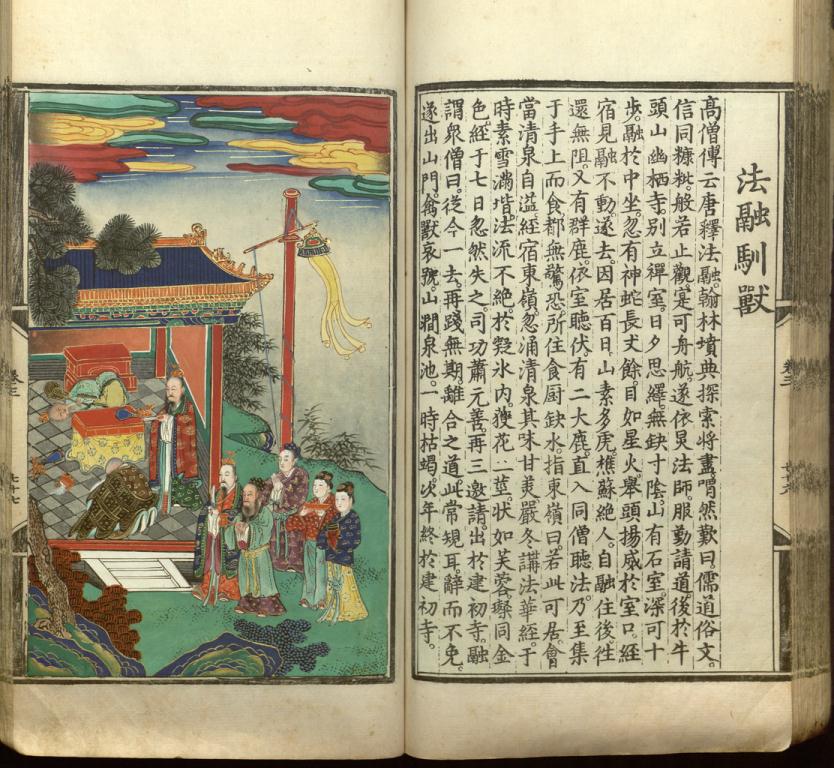 法融馴獸
高僧傳云唐釋法融翰林墳典探索將盡喟然歎曰儒道俗文
信同糠粃般若止觀寔可舟航遂依炅法師服勤請道後於牛
頭山幽栖寺別立禪室日夕思繹無缺寸陰山有石室深可十
步融於中坐忽有神蛇長丈餘目如星火舉頭揚威於室口經
宿見融不動遂去因居百日山素多虎樵蘇絕人自融住後往
還無阻又有群鹿依室聽伏有二大鹿直入同僧聽法乃至集
于手上而食都無驚恐所住食厨缺水指東嶺曰若此可居會
當清泉自溢經宿東嶺忽涌清泉其味甘美嚴冬講法華經于
時素雪滿堦法流不絕於凝氷內獲花二莖狀如芙蓉璨同金
色經于七日忽然失之司功蕭元善再三邀請出於建初寺融
謂眾僧曰從今一去再踐無期離合之道此常規耳辭而不免
遂出山門禽獸哀號山澗泉池一時枯竭次年終於建初寺
卷三